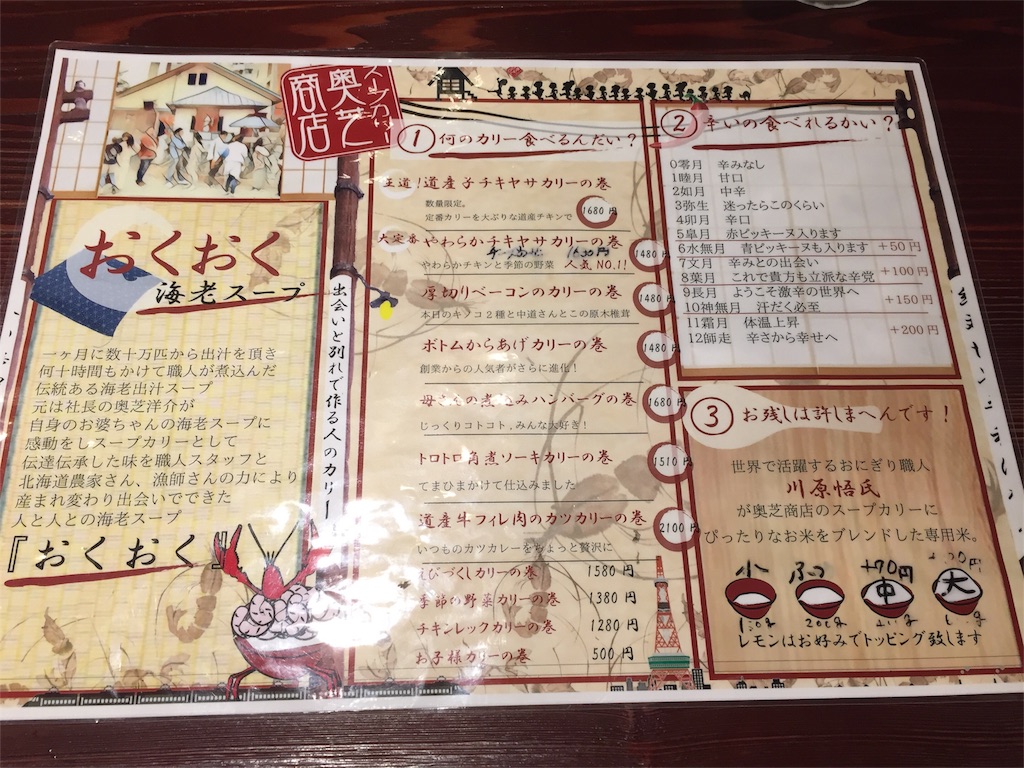 スープカリー
奥芝
商店
おくおく
海老スープ
一ヶ月に数十万匹から出汁を頂き
何十時間もかけて職人が煮込んだ
伝統ある海老出汁スープ
元は社長の奥芝洋介が
自身のお婆ちゃんの海老スープに
感動をしスープカリーとして
伝達伝承した味を職人スタッフと
北海道農家さん、漁師さんの力により
産まれ変わり出会いでできた
人と人との海老スープ
『おくおく』
出会いと別れで作る人のカリー
①何のカリー食べるんだい？
王道！道産子チキヤサカリーの巻
数量限定。
定番カリーを大ぶりな道産チキンで
1680円
大定番やわらかチキヤサカリーの巻
1480
やわらかチキンと季節の野菜 人気NO.1！
厚切りベーコンのカリーの巻
1480
本日のキノコ2種と中道さんとこの原木椎茸
ボトムからあげカリーの巻
1480
創業からの人気者がさらに進化！
母さんの煮込みハンバーグの巻
1680
じっくりコトコト、みんな大好き！
トロトロ角煮ソーキカリーの巻
1510
てまひまかけて仕込みました
道産牛フィレ肉のカツカリーの巻
2100
いつものカツカレーをちょっと贅沢に
えびづくしカリーの巻 1580円
季節の野菜カリーの巻 1380円
チキンレックカリーの巻 1280円
お子様カリーの巻 500円
②辛いの食べれるかい？
0零月 辛みなし
1睦月 甘口
2如月 中辛
3弥生 迷ったらこのくらい
4卯月 辛口
5皐月 赤ピッキーヌ入ります
6水無月 青ピッキーヌも入ります +50円
7文月 辛みとの出会い
8葉月 これで貴方も立派な辛党 +100円
9長月 ようこそ激辛の世界へ
10神無月 汗だく必至 +150円
11霜月 体温上昇
12師走 辛さから幸せへ +200円
③お残しは許しまへんです！
世界で活躍するおにぎり職人
川原悟氏
が奥芝商店のスープカリーに
ぴったりなお米をブレンドした専用米。
小 ふつう +70円
中 大
200g
レモンはお好みでトッピング致します